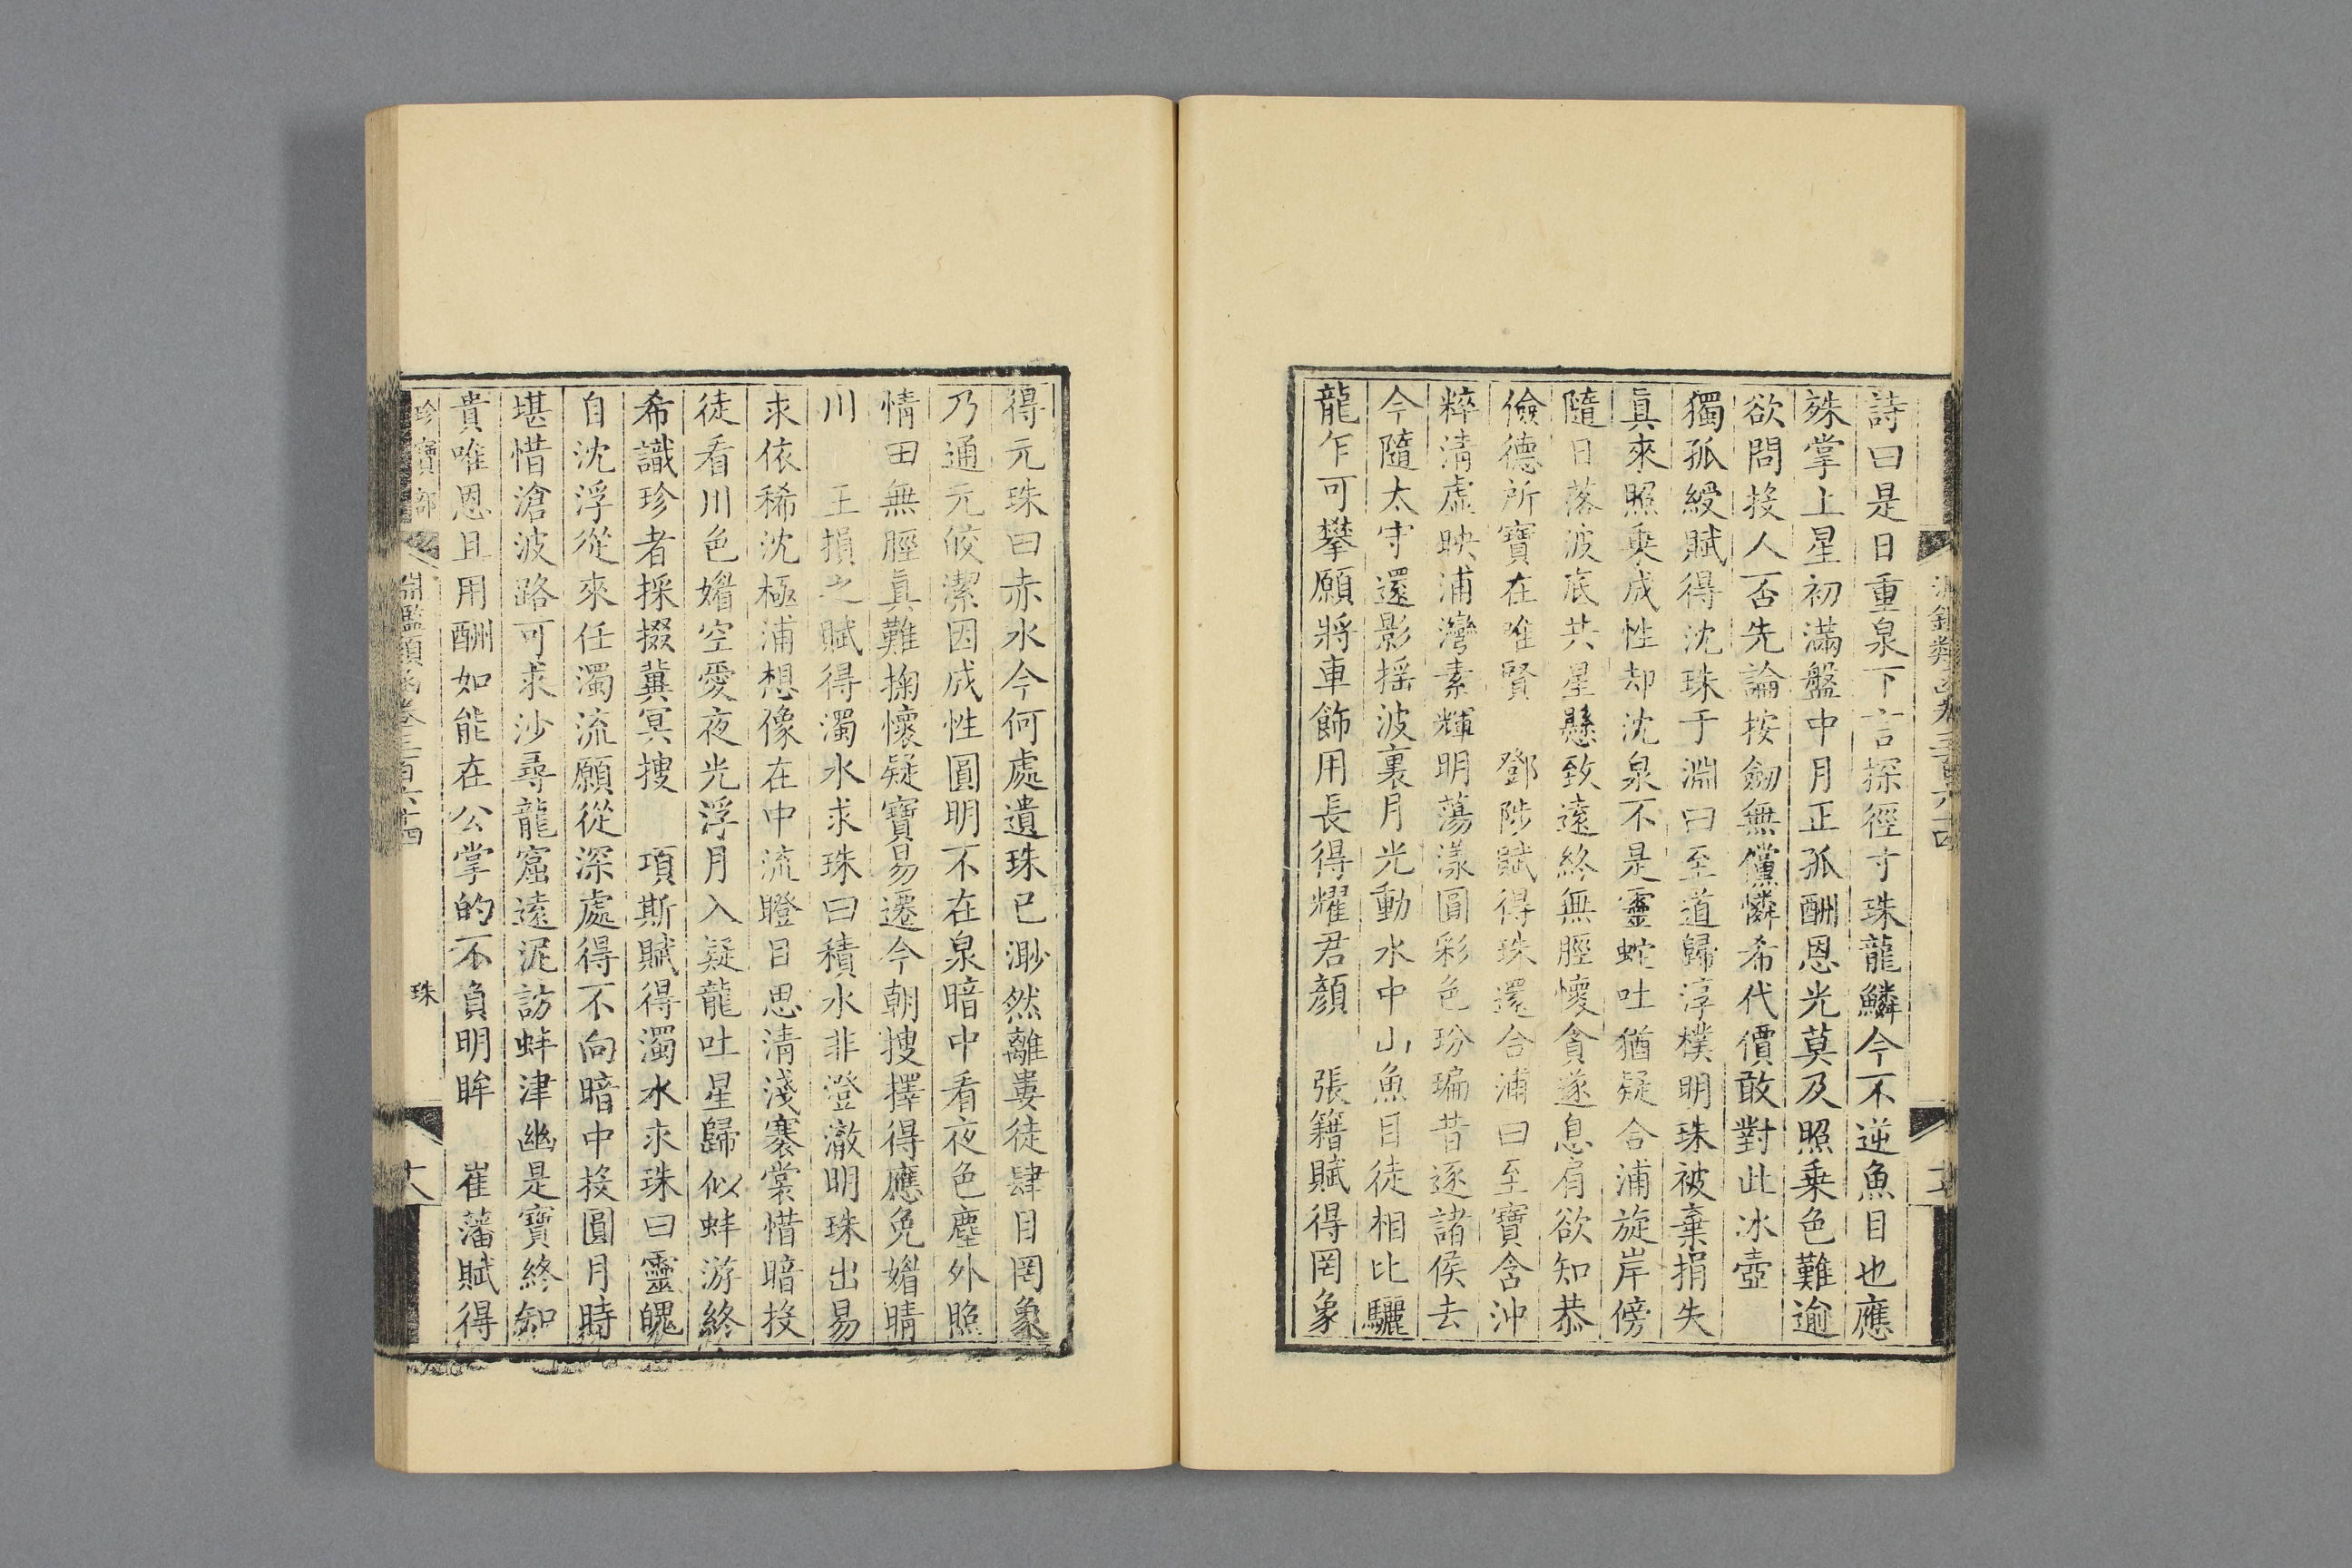 詩曰是日重泉下言探徑寸珠龍鱗今不逆魚目也應
殊掌上星初滿盤中月正孤酬恩光莫及照乗色難逾
欲問投人否先論按劒無儻憐希代價敢對此冰壺
獨孤綬賦得沈珠于淵曰至道歸淳樸明珠被棄捐失
真來照乗成性却沈泉不是靈蛇吐猶疑合浦旋岸傍
隨日落波底共星懸致遠終無脛懷貪遂息肩欲知恭
儉德所寶在唯賢　鄧陟賦得珠還合浦曰至寶含沖
粹清虛映浦灣素輝明蕩漾圓彩色玢㻞昔逐諸侯去
今隨太守還影搖波裏月光動水中山魚目徒相比驪
龍乍可攀願將車飾用長得耀君顏　張籍賦得罔象
得元珠曰赤水今何處遺珠已渺然離婁徒肆目罔象
乃通元皎潔因成性圓明不在泉暗中看夜色塵外照
情田無脛真難掬懷疑寶易遷今朝搜擇得應免媚晴
川　王損之賦得濁水求珠曰積水非澄澈明珠出易
求依稀沈極浦想像在中流瞪目思清淺褰裳惜暗投
徒看川色媚空愛夜光浮月入疑龍吐星歸似蚌游終
希識珍者採掇冀冥搜　項斯賦得濁水求珠曰靈魄
自沈浮從來任濁流願從深處得不向暗中投圓月時
堪惜滄波路可求沙尋龍窟遠泥訪蚌津幽是寶終知
貴唯恩且用酬如能在公掌的不負明眸　崔藩賦得
珍寶部　淵鑑類函卷三百六十四　珠　十八